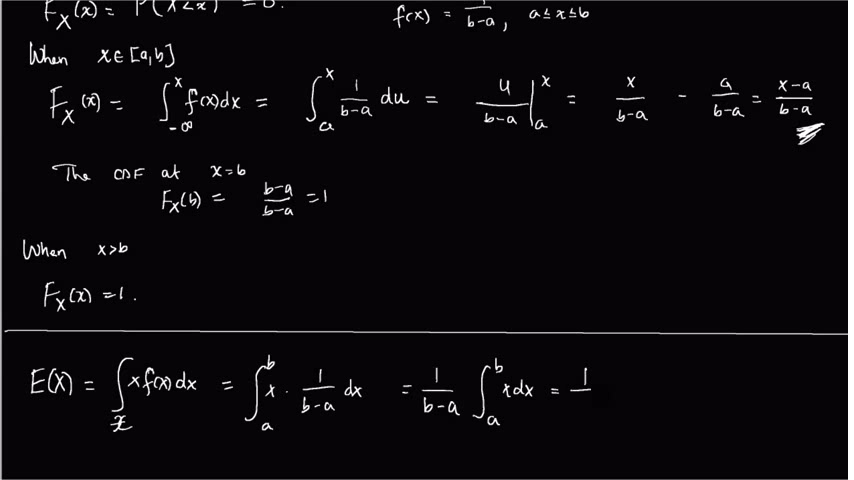 F_X(x) = P(X<x) = 0.
f(x) = 1/(b-a), a≤x≤b
When x∈[a,b]
F_X(x) = ∫_{-∞}^{x} f(x)dx = ∫_a^x 1/(b-a) du = u/(b-a) |_a^x = x/(b-a) - a/(b-a) = (x-a)/(b-a)
The CDF at x=b
F_X(b) = (b-a)/(b-a) = 1
When x>b
F_X(x) = 1.
E(X) = ∫_x x f(x) dx = ∫_a^b x · 1/(b-a) dx = 1/(b-a) ∫_a^b x dx = 1/